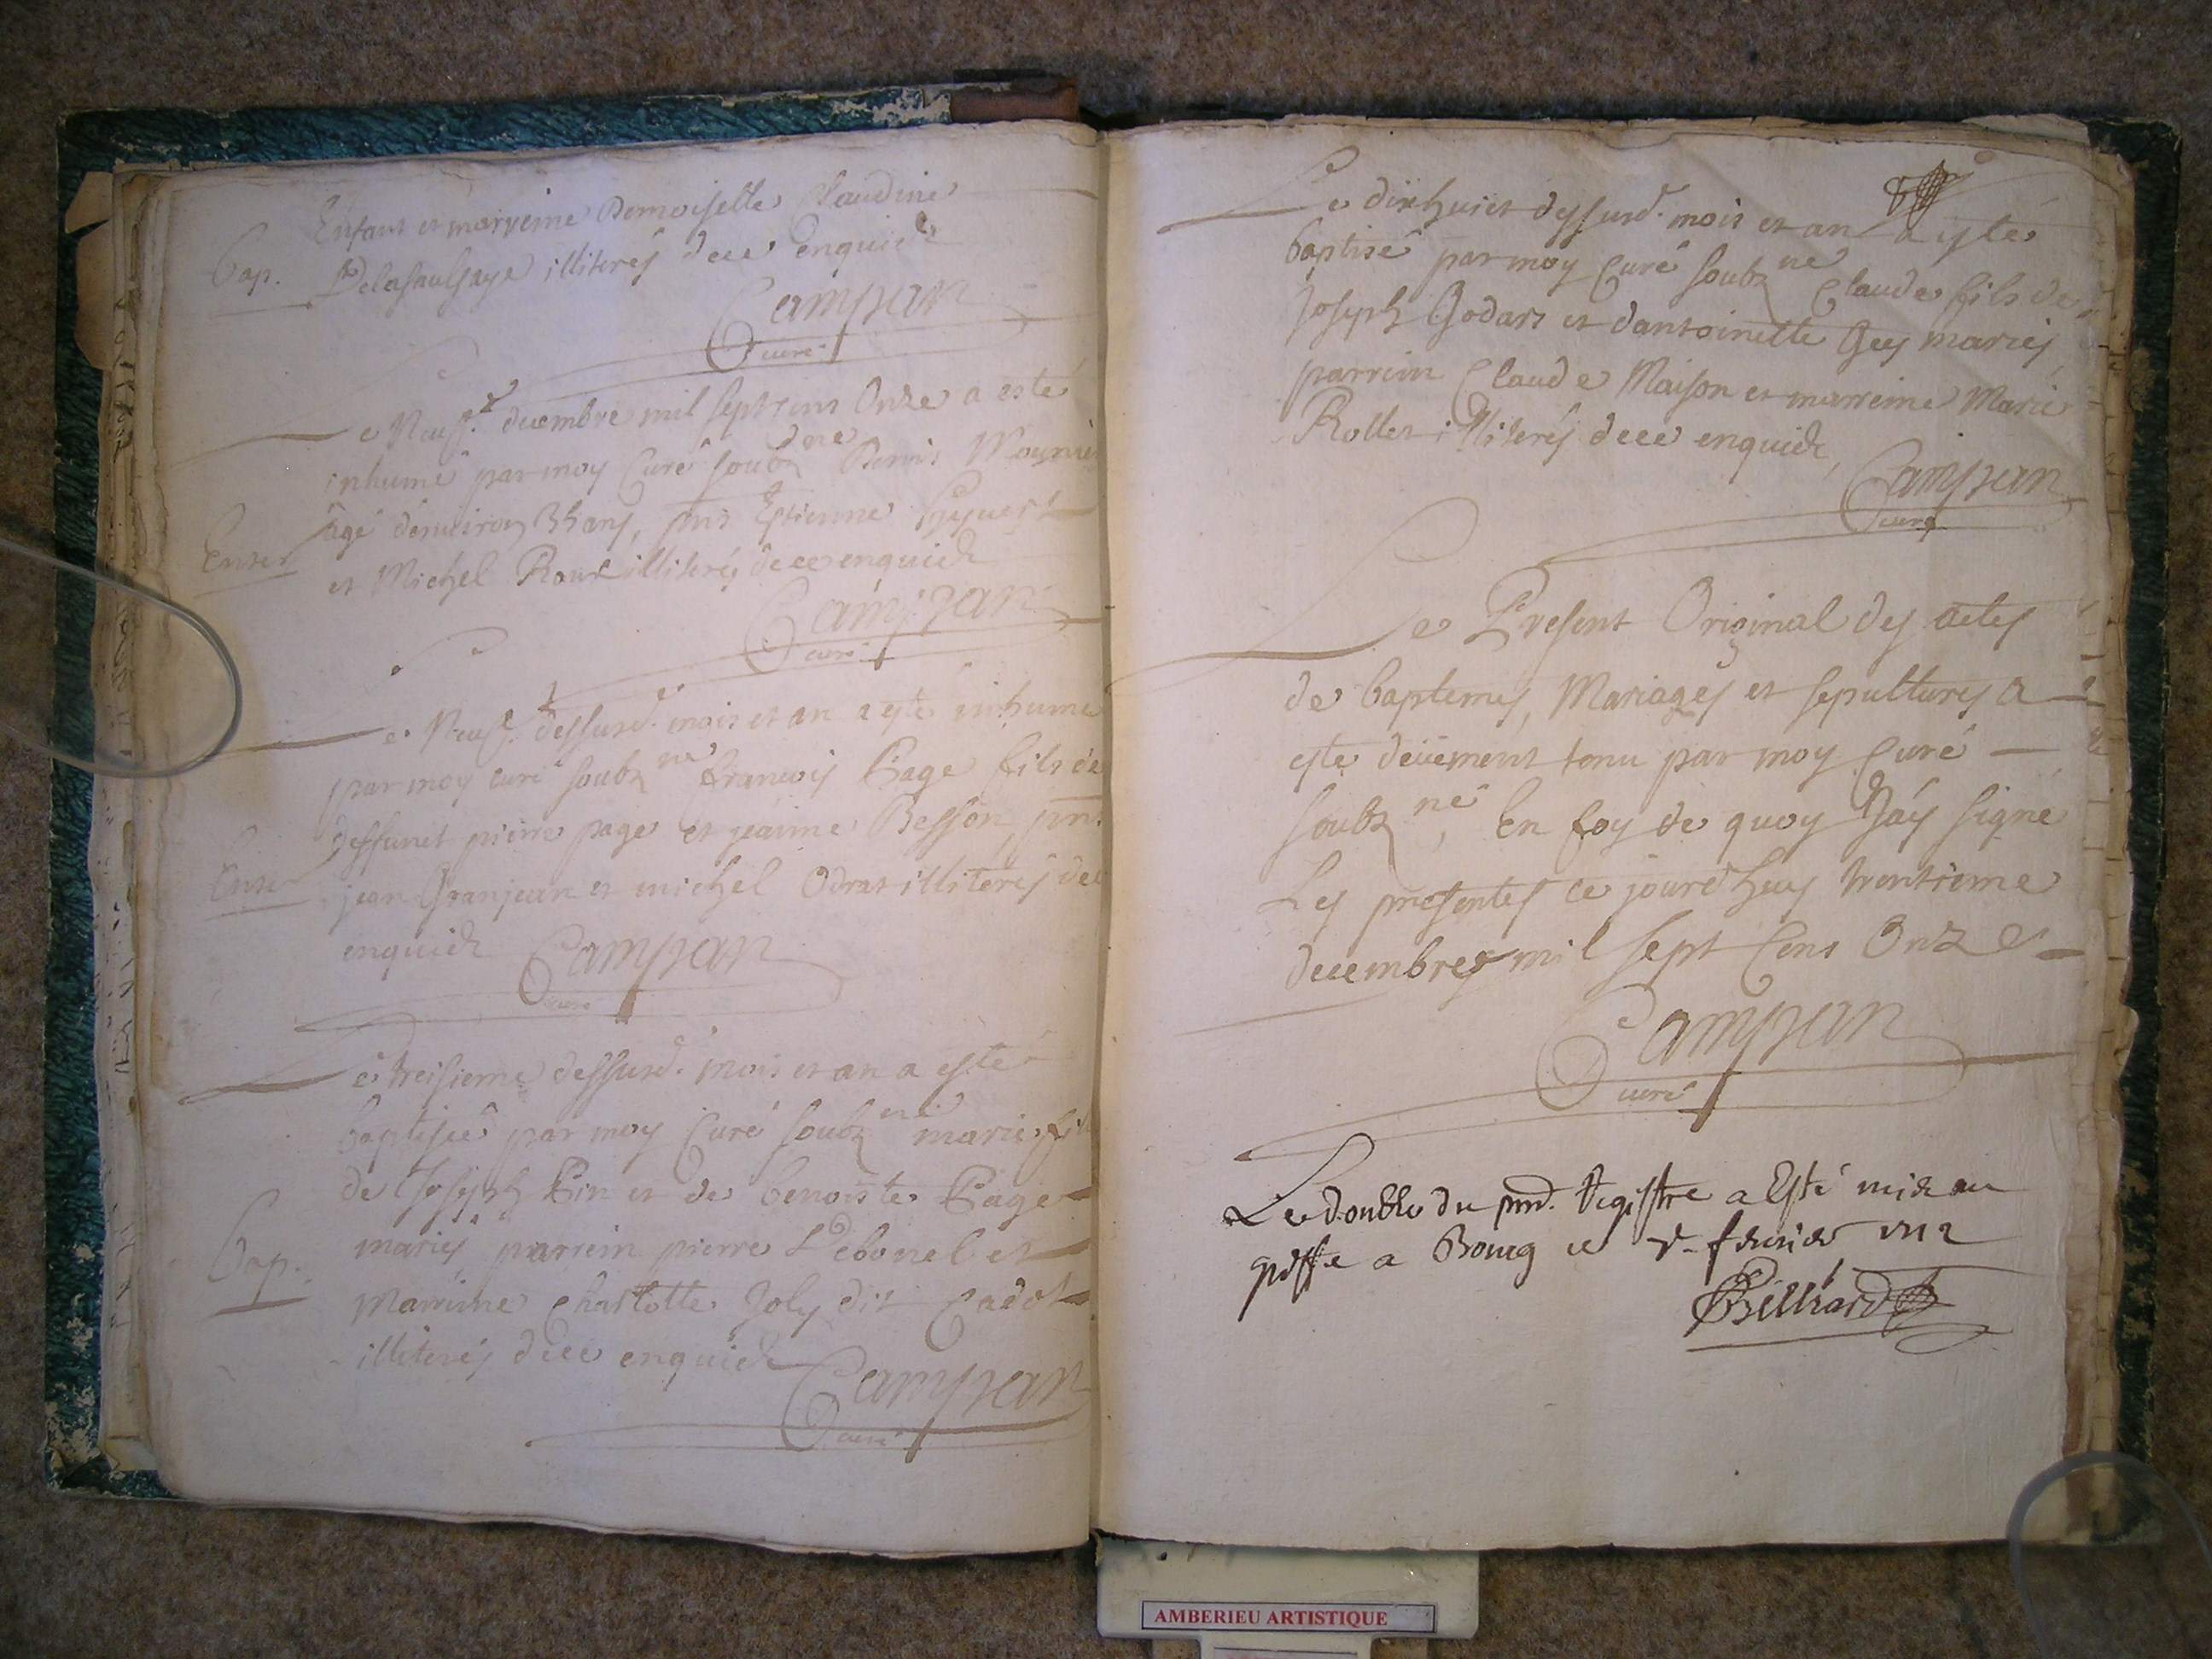 Enfant et marreine Demoiselle Claudine
Bap. Delasaulsaye illiterés de ce enquis
Campan
curé
Le Neuf. decembre mil sept cens Onze a esté
inhumé par moy Curé soubz né Denis
Enter agé denviron ans, pnts Estienne
et Michel Roux illiterés de ce enquis
Campan
curé
Le Neuf. dessusd. mois et an a esté inhumé
par moy curé soubz né francois Page fils de
deffunct pierre page et jeanne Besson, pnts
Enter jean Granjean et michel Odrat illiterés de ce
enquis Campan
curé
Le treisieme dessusd. mois et an a esté
baptisée par moy Curé soubz né marie
de Joseph Pin et de benoiste Page
Bap. mariés, parrein pierre Debonel et
Marreine Charlotte Joly dit Cadot
illiterés de ce enquis
Campan
curé
Le dixhuict dessusd. mois et an a esté
baptisé par moy Curé soubz né Claude fils de
Joseph Godart et dantoinette Guy mariés,
parrein Claude Maison et marreine Marie
Rollet illiterés de ce enquis,
Campan
curé
Le Present Original des actes
de baptemes, Mariages et sepultures a
esté deüement tenu par moy Curé
soubz né, En foy de quoy J'ay signé
Les presentes ce jourd'huy trentieme
decembre mil sept Cens Onze
Campan
curé
Le double du pnt. Registre a Esté mis au
greffe a Bourg ce fevrier 1712
Billiard
AMBERIEU ARTISTIQUE